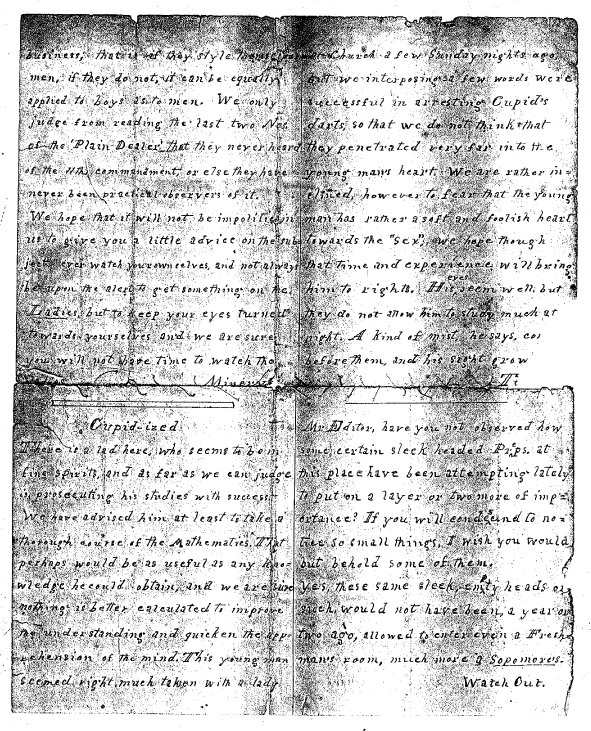 business, that is if they style themselves
men, if they do not, it can be equally
applied to boys as to men. We only
judge from reading the last two Nos.
of the 'Plain Dealer' that they never heard
of the 11th, commandment, or else they have
never been practical observers of it.
We hope that it will not be impolitic in
us to give you a little advice on the sub-
ject: ever watch yourownselves, and not always
be upon the alert to get something on the
Ladies, but to keep your eyes turned
towards yourselves and we are sure
you will not have time to watch the
Minerva
Cupid-ized
There is a lad here, who seems to be in
fine spirits, and as far as we can judge
is prosecuting his studies with success.
We have advised him at least to take a
thorough course of the Mathematics. That
perhaps would be as useful as any kno=
wledge he could obtain, and we are sure
nothing is better calculated to improve
the understanding and quicken the app-
rehension of the mind. This young man
seemed right much taken with a lady
at Church a few Sunday nights ago,
but we interposing a few words were
successful in arresting Cupid's
darts, so that we do not think that
they penetrated very far into the
young man's heart. We are rather in=
clined, however to fear that the young
man has rather a soft and foolish heart
towards the "sex", we hope though
that time and experience will bring
him to rights. His eyes seem well, but
they do not allow him to study much at
night. A kind of mist, he says,
before them, and his sight grow
Mr Editor, have you not observed how
some certain sleek headed Preps. at
this place have been attempting lately
to put on a layer or two more of imp=
ortance? If you will condecend to no=
tice so small things, I wish you would
but behold some of them.
Yes, these same sleek, empty heads
such, would not have been, a year or
two ago, allowed to enter even a Fresh-
man's room, much more a Sopomore's.
Watch Out.